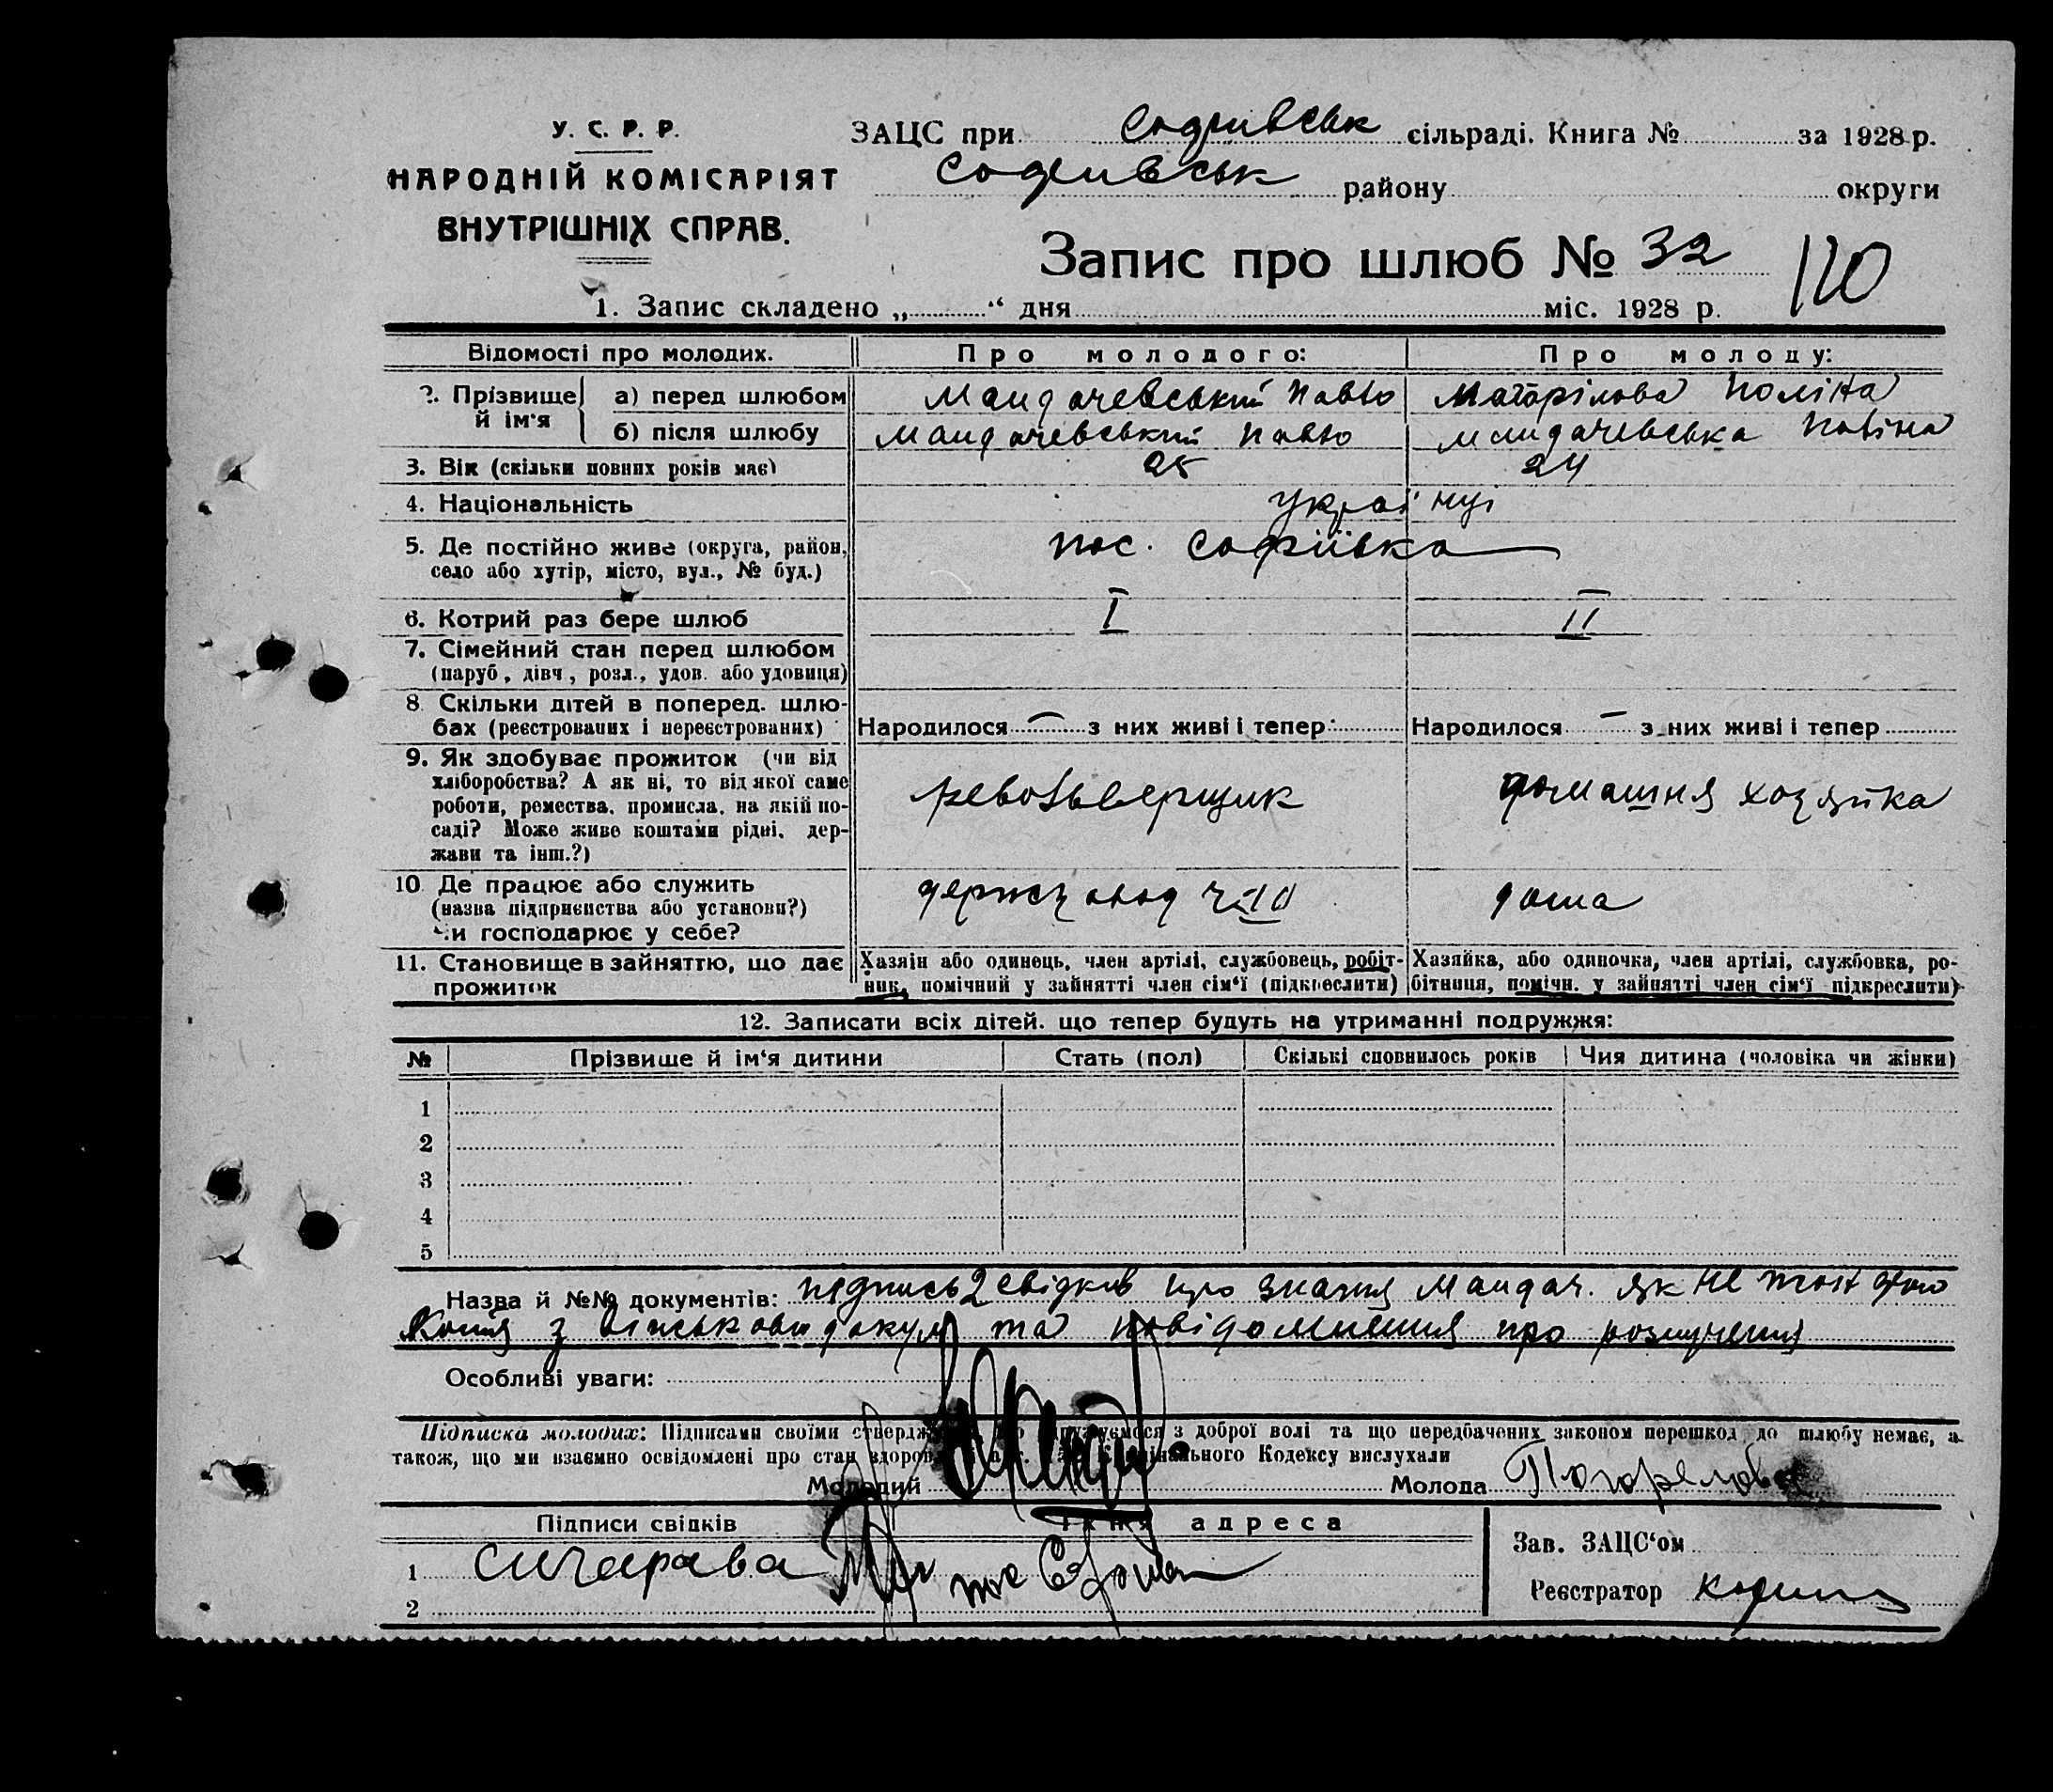 У. С. Р. Р.
НАРОДНІЙ КОМІСАРІЯТ
ВНУТРІШНІХ СПРАВ.
ЗАЦС при сільраді. Книга № за 1928 р.
району округи
Запис про шлюб № 32 110
1. Запис складено „ “ дня міс. 1928 р.
Відомості про молодих. Про молодого: Про молоду:
2. Прізвище й ім'я
а) перед шлюбом Мандачевський Павло Поліна
б) після шлюбу Мандачевський Павло Мандачевська Поліна
3. Вік (скільки повних років має) 25 24
4. Національність українці
5. Де постійно живе (округа, район, пос. Софіївка
село або хутір, місто, вул., № буд.)
6. Котрий раз бере шлюб I II
7. Сімейний стан перед шлюбом
(паруб., дівч., розл., удов. або удовиця)
8. Скільки дітей в поперед. шлю-
бах (реєстрованих і нереєстрованих) Народилося — з них живі і тепер Народилося — з них живі і тепер
9. Як здобуває прожиток (чи від
хліборобства? А як ні, то від якої саме
роботи, ремества, промисла, на якій по-
саді? Може живе коштами рідні, дер-
жави та інш.?)
револьверщик домашня хозяйка
10. Де працює або служить
(назва підприємства або установи?)
Чи господарює у себе?
держзавод дома
11. Становище в зайняттю, що дає
прожиток
Хазяін або одинець, член артілі, службовець, робіт-
ник, помічний у зайнятті член сім'ї (підкреслити)
Хазяйка, або одиночка, член артілі, службовка, ро-
бітниця, помічн. у зайнятті член сім'ї підкреслити)
12. Записати всіх дітей, що тепер будуть на утриманні подружжя:
№ Прізвище й ім'я дитини Стать (пол) Скількі сповнилось років Чия дитина (чоловіка чи жінки)
1
2
3
4
5
Назва й №№ документів: підпись 2 свідків про знання Мандач. як не
Копія з військових докум та повідомлення про розлучення
Особливі уваги:
Підписка молодих: Підписами своїми з доброї волі та що передбачених законом перешкод до шлюбу немає, а
також, що ми взаємно освідомлені про стан Кодексу вислухали
Молодий Молода Погорелова
Підписи свідків Їхня адреса
1 пос
2
Зав. ЗАЦС'ом
Реєстратор